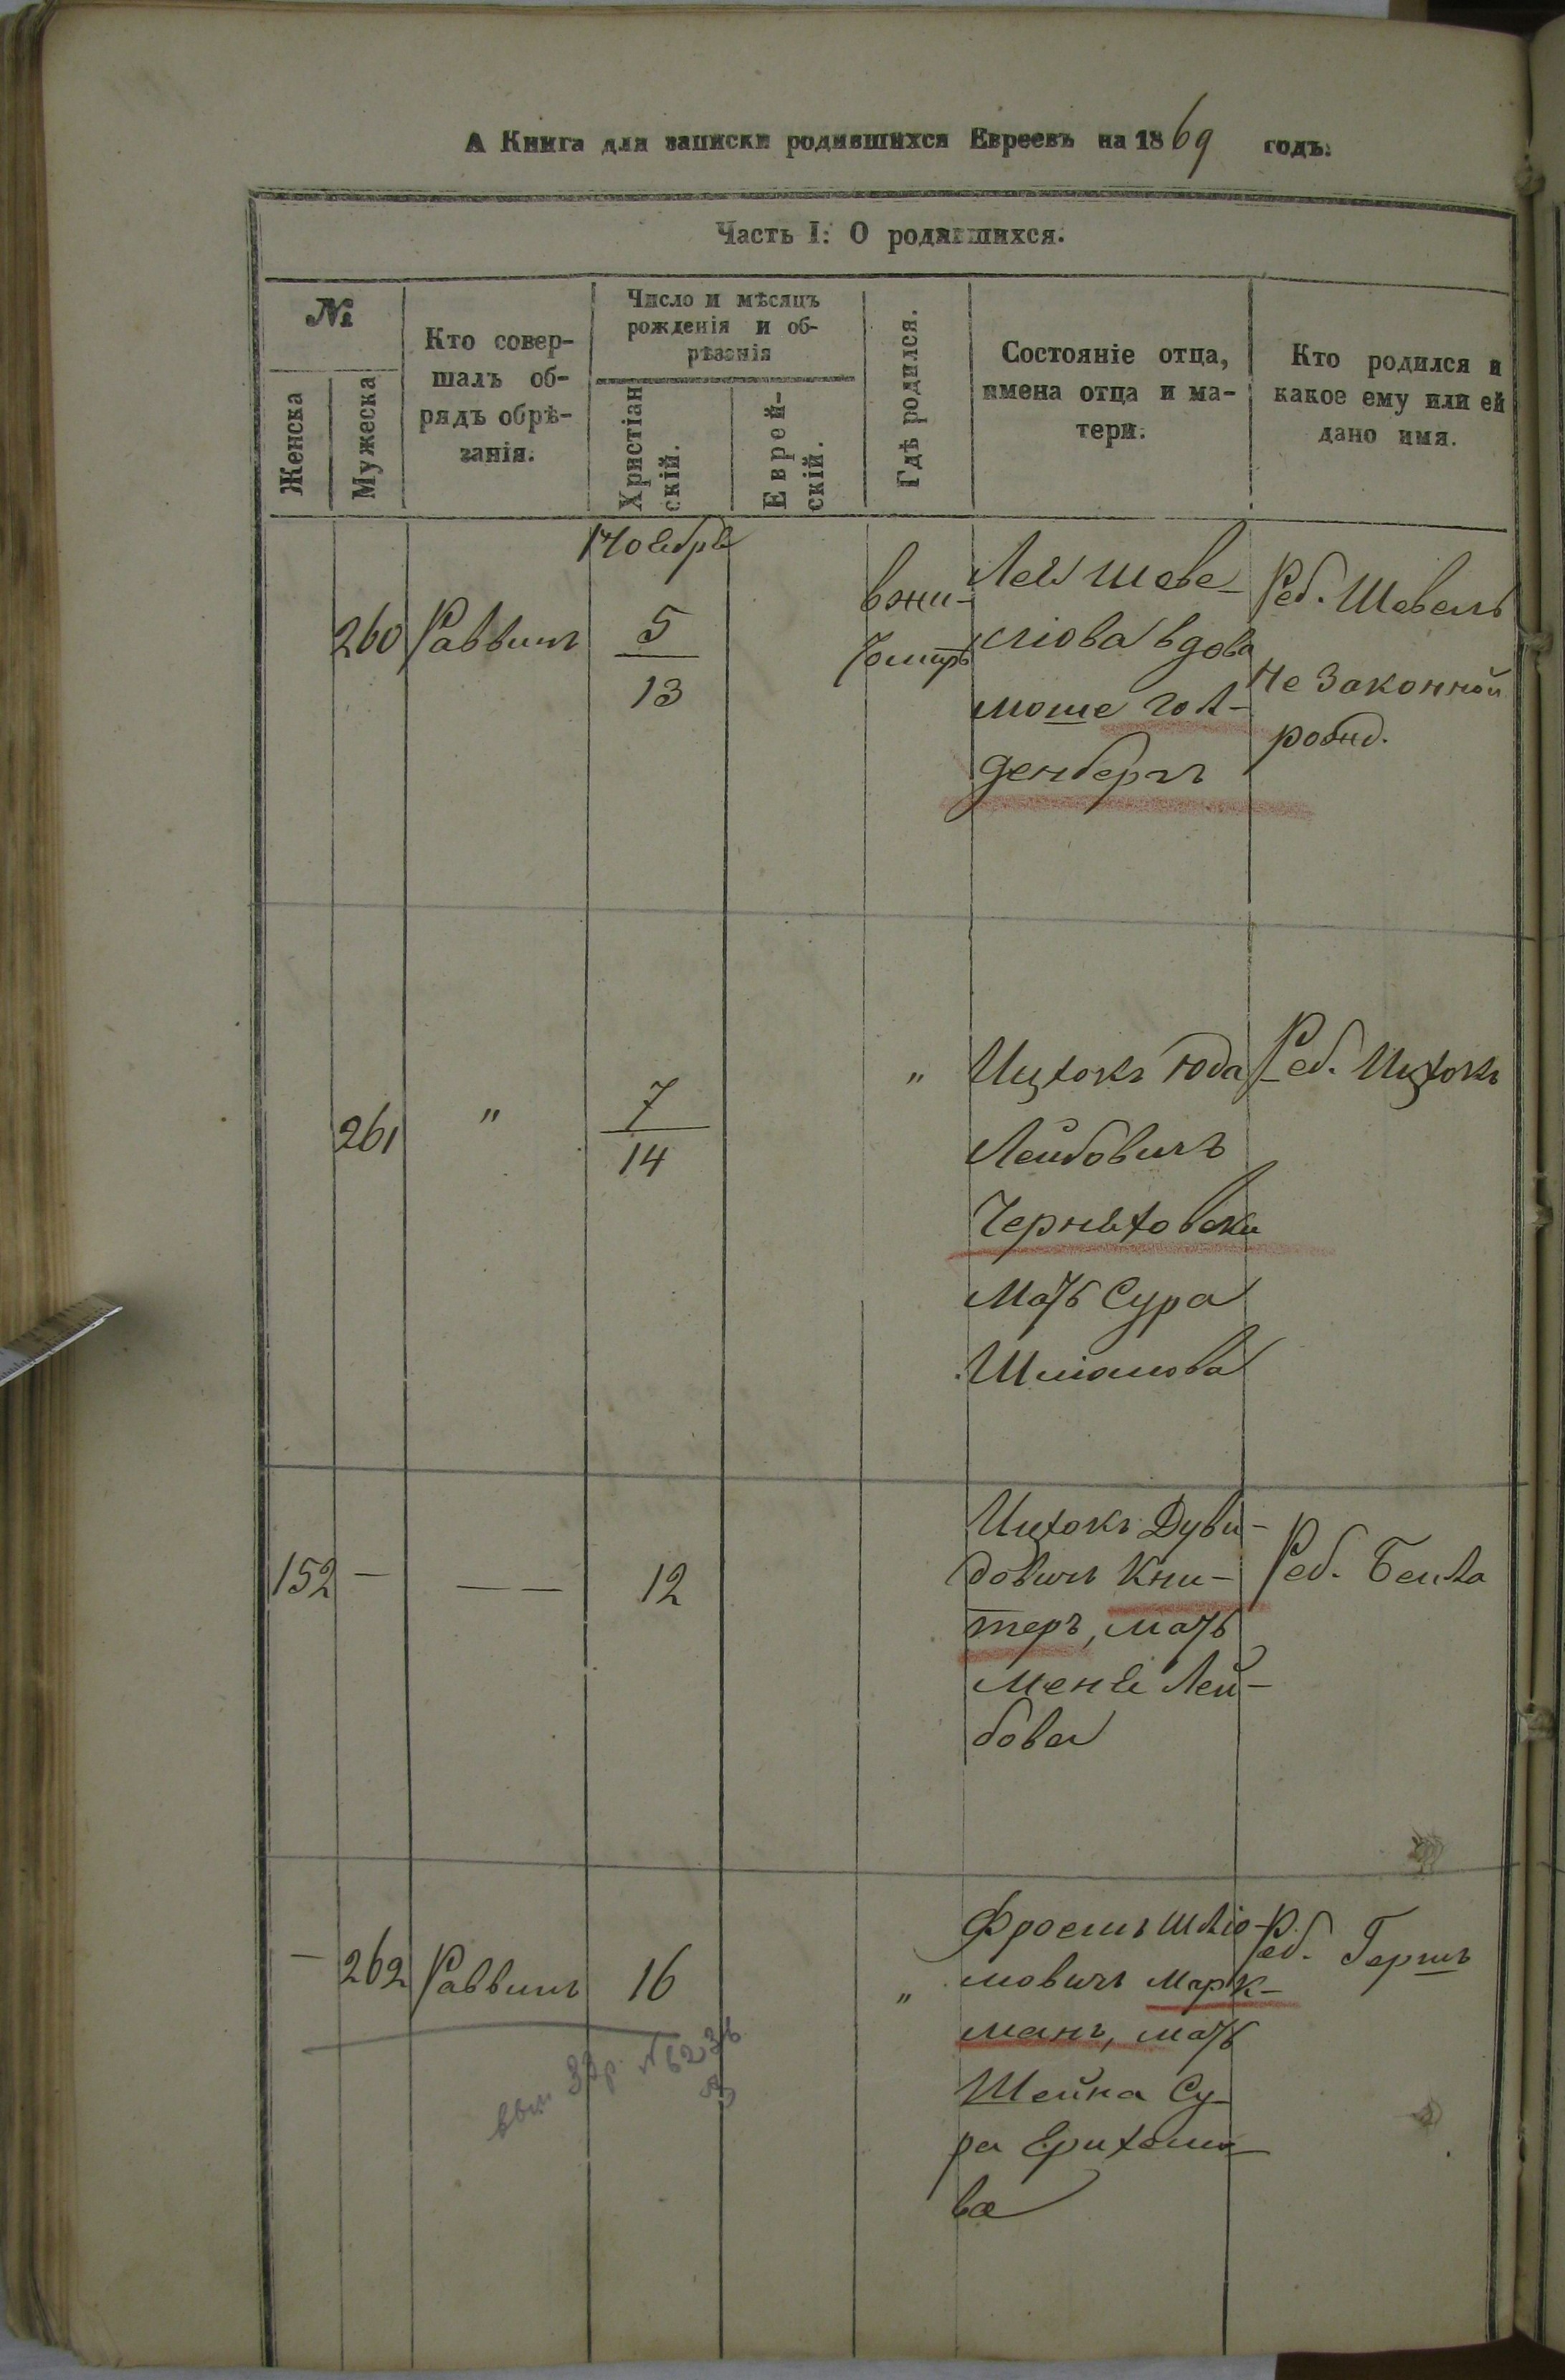 А Книга для записки родившихся Евреевъ на 1869 годъ.
Часть I: О родившихся.
№
Женска
Мужеска
Кто совер-
шалъ об-
рядъ обрѣ-
занія.
Число и мѣсяцъ
рожденія и об-
рѣзанія
Христіан
скій.
Еврей-
скій.
Гдѣ родился.
Состояніе отца,
имена отца и ма-
тери.
Кто родился и
какое ему или ей
дано имя.
Ноября
260
Раввинъ
5
13
в жи-
томирѣ
Лея Шеве-
лiова вдова
моше гол-
денбергъ
Реб. Шевель
не Законной
рожд.
261
"
7
14
"
Ицхокъ Юда
Лейбовичъ
Черняховски
мать Сура
Шліомова
Реб. Ицхокъ
152
—
— —
12
Ицхокъ Дуви-
довичъ Кни-
теръ, мать
Меня Лей-
бова
Реб. Бейла
—
262
Раввинъ
16
"
Фроемъ Шліо-
мовичъ Марк-
манъ, мать
Шейна Су-
ра
ва
Реб. Гершъ